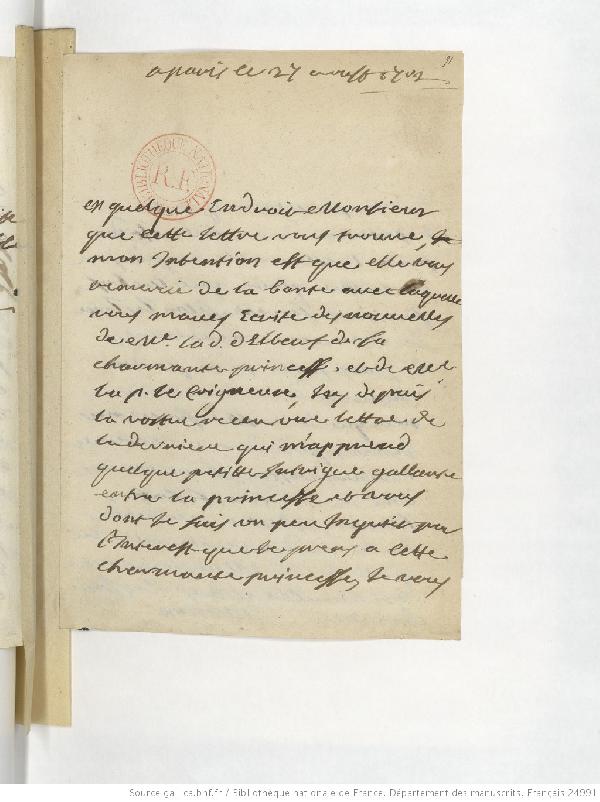 91
a paris le 27 aoust 1702
BIBLIOTHEQUE NATIONALE
R.F.
en quelque Endroit Monsieur
que cette lettre vous trouve,
mon Intention est que elle vous
remercie de la bonte avec laquelle
vous maves Ecrite des nouvelles
de Me. la d. d'Elbeuf de la
charmante princesse, et de Me.
la p. le Coigneux, Jay depuis
la vostre receu une lettre de
la derniere qui m'apprend
quelque petitte Intrigue gallante
entre la princesse et vous
dont Je suis un peu Inquiet par
l'Interest que Je prens a cette
charmante princesse, Je vous
Source gallica.bnf.fr / Bibliothèque nationale de France. Département des manuscrits. Français 24991